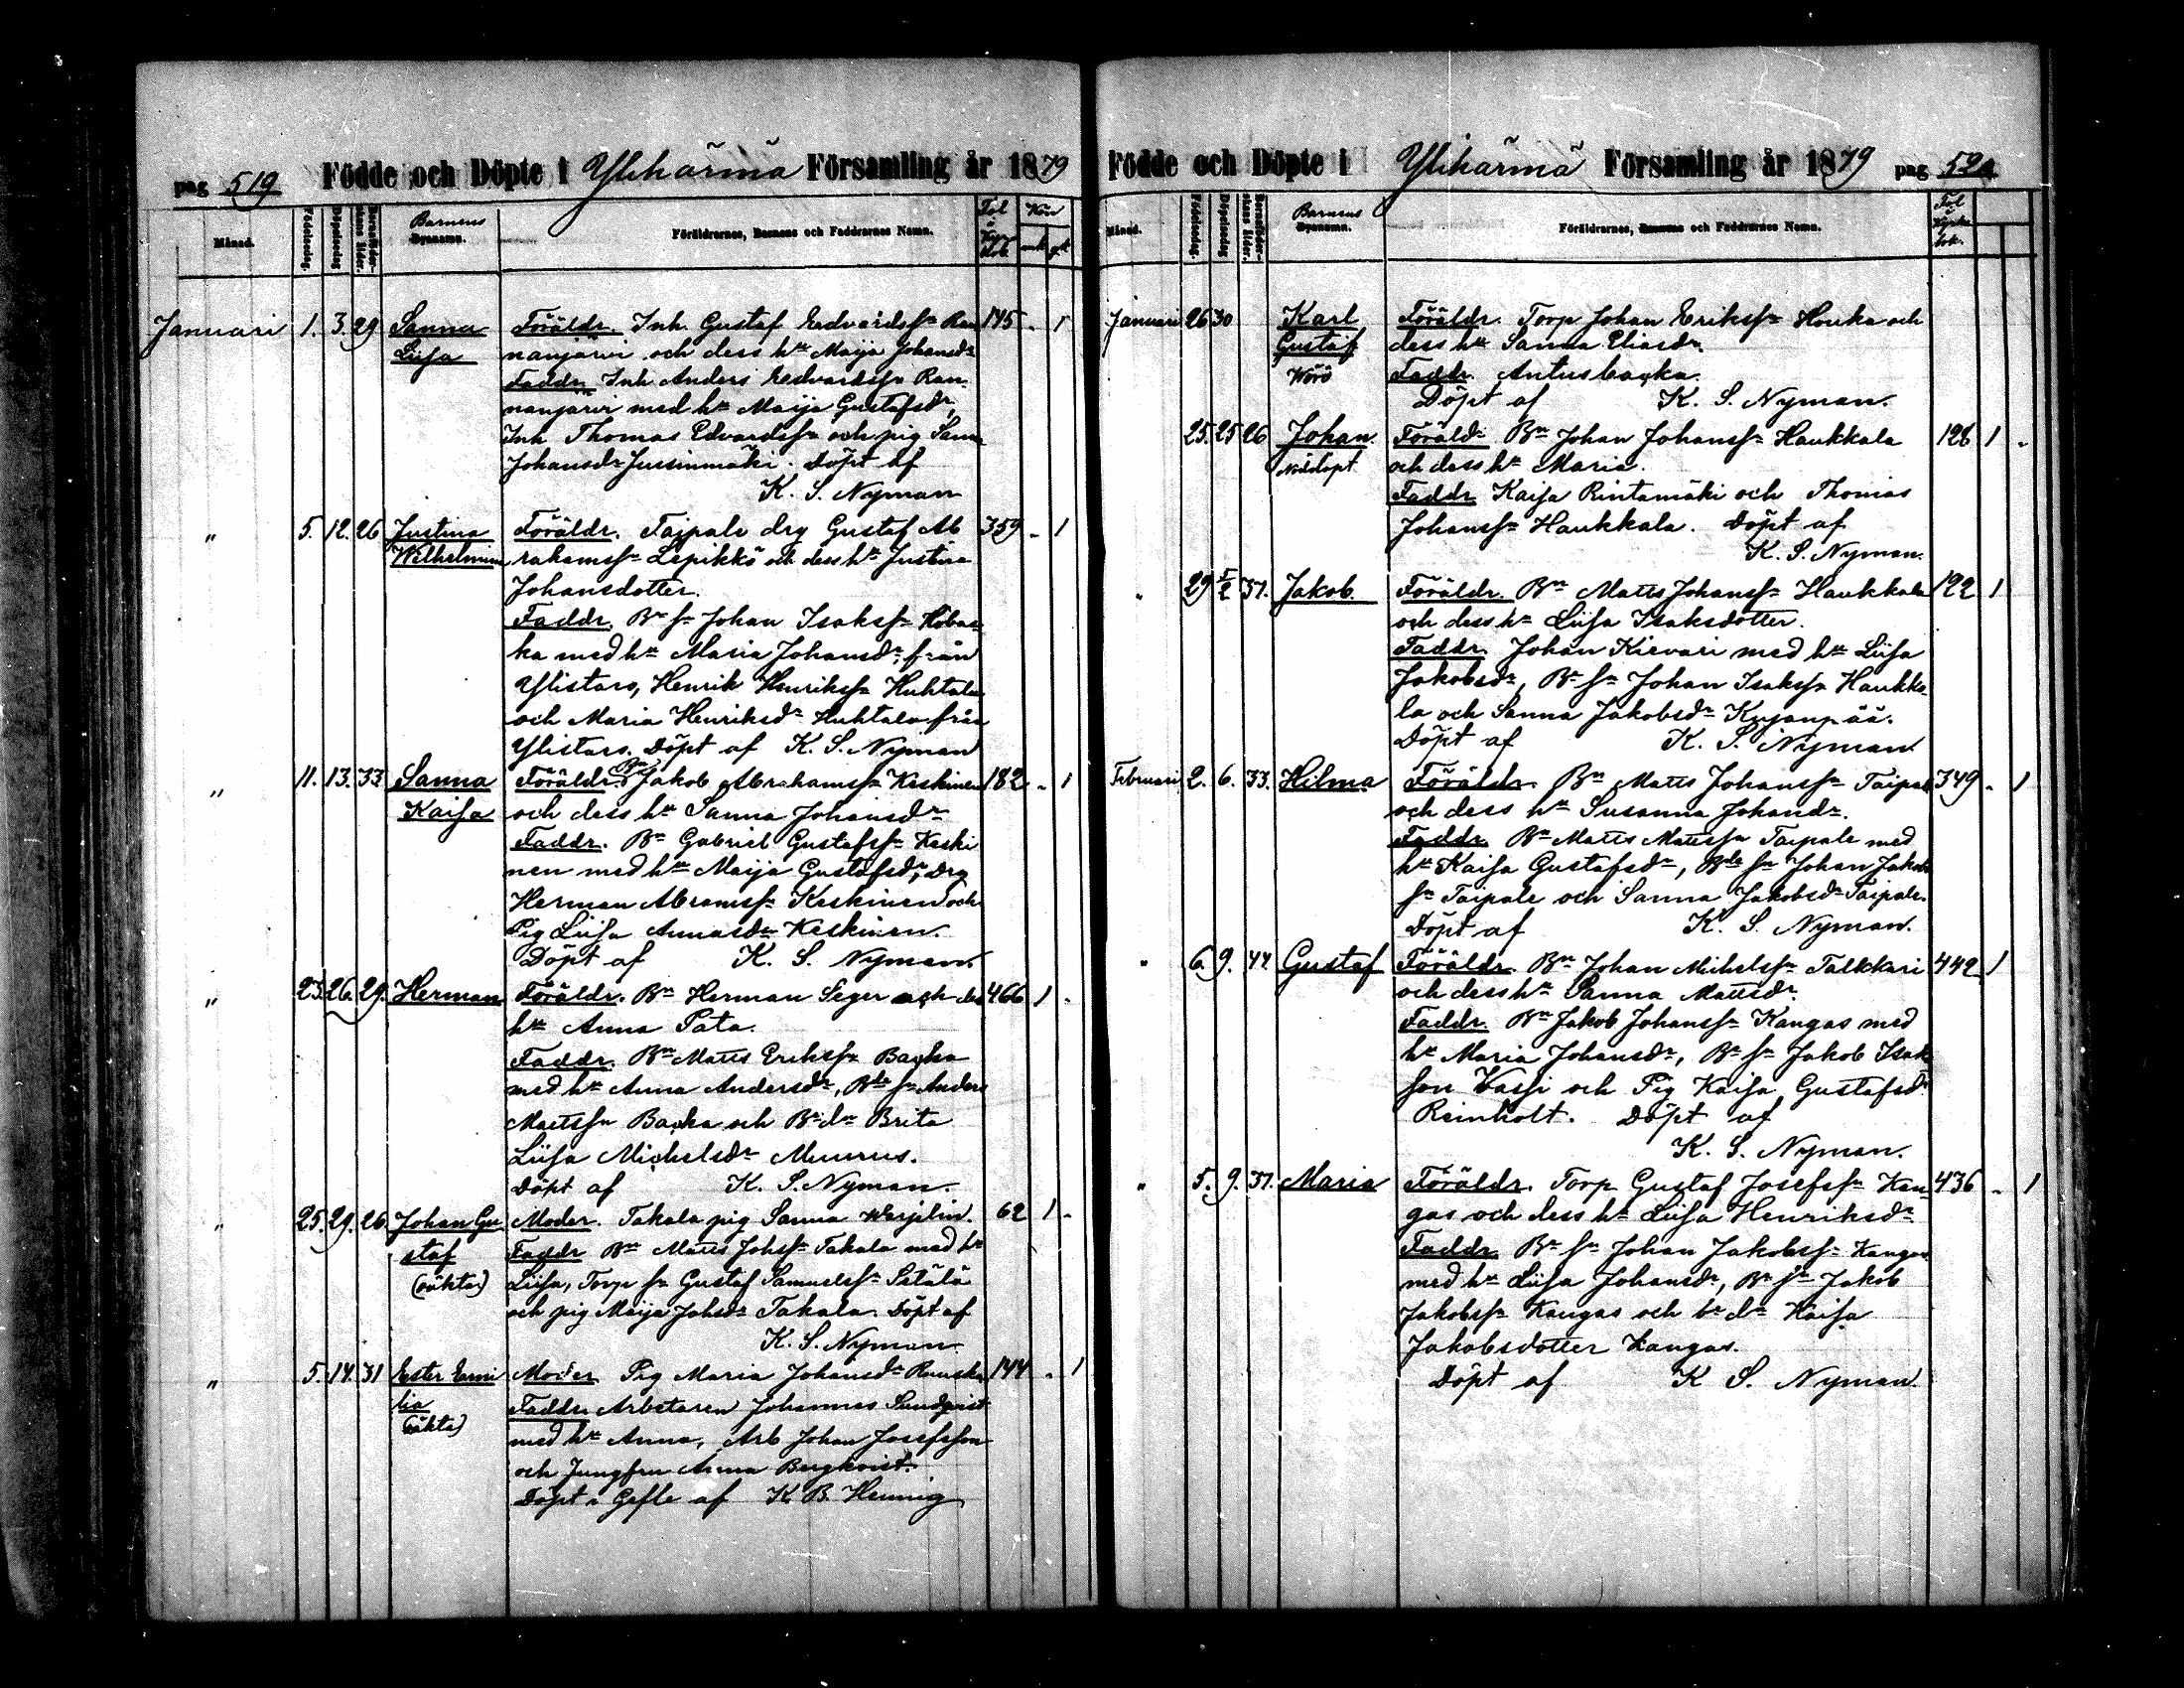 pag 519 Födde och Döpte i Ylihärmä Församling år 1879
Månad. Födelsedag. Döpelsedag Barnens Föräldrarnes, Barnens och Faddrarnes Namn. Kön
Januari 1. 3. 29 Sanna Föräldr. Inh. Gustaf Edvardsson Ran 145 - 1
Liisa nanjärvi och dess hu Maija Johansdr
Faddr. Inh Anders Edvardsson Ran
nanjärvi med hu Maija Gustafsdr,
Inh Thomas Edvardssn och pig Sanna
Johansdr Jussinmäki. Döpt af
K. S. Nyman
" 5. 12. 26 Justina Föräldr. Taipale drg Gustaf Ab 359 - 1
Wilhelmina rahamssn Lepikkö och dess hu Justina
Johansdotter.
Faddr. Bn sn Johan Isakssn
ka med hu Maria Johansdr, från
Ylistaro, Henrik Henrikssn Huhtala
och Maria Henriksdr Huhtala från
Ylistaro. Döpt af K. S. Nyman
" 11. 13. 33 Sanna Föräldr. Bn Jakob Abrahamssn Keskinen 182 - 1
Kaisa och dess hu Sanna Johansdr
Faddr. Bn Gabriel Gustafssn Keski
nen med hu Maija Gustafsdr, Drg
Herman Abramssn Keskinen och
Pig Liisa Annasdr Keskinen.
Döpt af K. S. Nyman.
" 23. 26. 29. Herman Föräldr. Bn Herman Seger och dess 466 1 -
hu Anna Pata.
Faddr. Bn Matts Erikssn Backa
med hu Anna Andersdr, Bde sn Anders
Mattssn Backa och Bn dr Brita
Liisa Michelsdr Muurus.
Döpt af K. S. Nyman.
" 25. 29. 26 Johan Gu Moder. Takala pig Sanna Warjelin. 62 1 -
staf Faddr Bn Matts Johssn Takala med hu
(oäkta) Liisa, Torp sn Gustaf Samuelssn Setälä
och pig Maija Johsdr Takala. Döpt af
K. S. Nyman.
" 5. 14. 31 Ester Emi Moder Pig Maria Johansdr 144 - 1
lia Faddr Arbetaren Johannes Sundqvist
(oäkta) med hu Anna, Arb Johan Josefsson
och Jungfru Anna Bergkvist.
Döpt i Gefle af K. B. Hennig
Födde och Döpte i Ylihärmä Församling år 1879 pag 520.
Månad. Födelsedag. Döpelsedag Barnens Föräldrarnes, Barnens och Faddrarnes Namn.
Januari 26 30 Karl Föräldr. Torp Johan Erikssn Houka och
Gustaf dess hu Sanna Eliasdr.
Wörå Faddr. Antusbacka.
Döpt af K. S. Nyman.
25. 25 26 Johan Föräldr Bn Johan Johanssn Haukkala 128 1 -
Nöddöpt och dess hu Maria.
Faddr Kaisa Rintamäki och Thomas
Johanssn Haukkala. Döpt af
K. S. Nyman.
" 29 5/2 37. Jakob Föräldr. Bn Matts Johanssn Haukkala 122 1
och dess hu Liisa Isaksdotter.
Faddr. Johan Kievari med hu Liisa
Jakobsdr, Bn sn Johan Isakssn Haukka
la och Sanna Jakobsdr Kujanpää.
Döpt af K. S. Nyman
Februari 2. 6. 33. Hilma Föräldr. Bn Matts Johanssn Taipale 349 - 1
och dess hu Susanna Johandr.
Faddr. Bn Matts Mattssn Taipale med
hu Kaisa Gustafsdr, Bde sn Johan Jakobs
sn Taipale och Sanna Jakobsdr Taipale.
Döpt af K. S. Nyman.
" 6. 9. 44. Gustaf Föräldr. Bn Johan Michelssn Talkkari 442 1
och dess hu Sanna Mattsdr.
Faddr. Bn Jakob Johanssn Kangas med
hu Maria Johansdr, Bn sn Jakob Isak
son Vassi och Pig Kaisa Gustafsdr
Reinholt. Döpt af
K. S. Nyman.
" 5. 9. 37. Maria Föräldr. Torp Gustaf Josefssn Kan 436 - 1
gas och dess hu Liisa Henriksdr
Faddr. Bn sn Johan Jakobssn Kangas
med hu Liisa Johansdr, Bn sn Jakob
Jakobssn Kangas och bn dr Kaisa
Jakobsdotter Kangas.
Döpt af K S. Nyman.